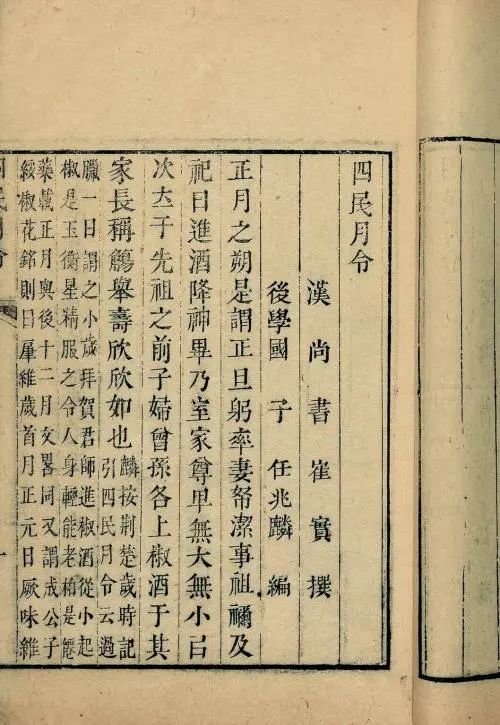 四民月令
漢尚書崔寔撰
後學國子任兆麟編
正月之朔是謂正旦躬率妻孥潔事祖禰及
祀日進酒降神畢乃室家尊卑無大無小㠯
次㘴于先祖之前子婦曾孫各上椒酒于其
家長稱觴舉壽欣欣如也
麟按荆楚歲時記
引四民月令云過
臘一日謂之小歲拜賀君師進椒酒從小起
椒是玉衡星精服之令人身輕能老柏是僊
藥載正月與後十二月文畧同又謂成公子
綏椒花銘則曰肇維歲首月正元日厥味維